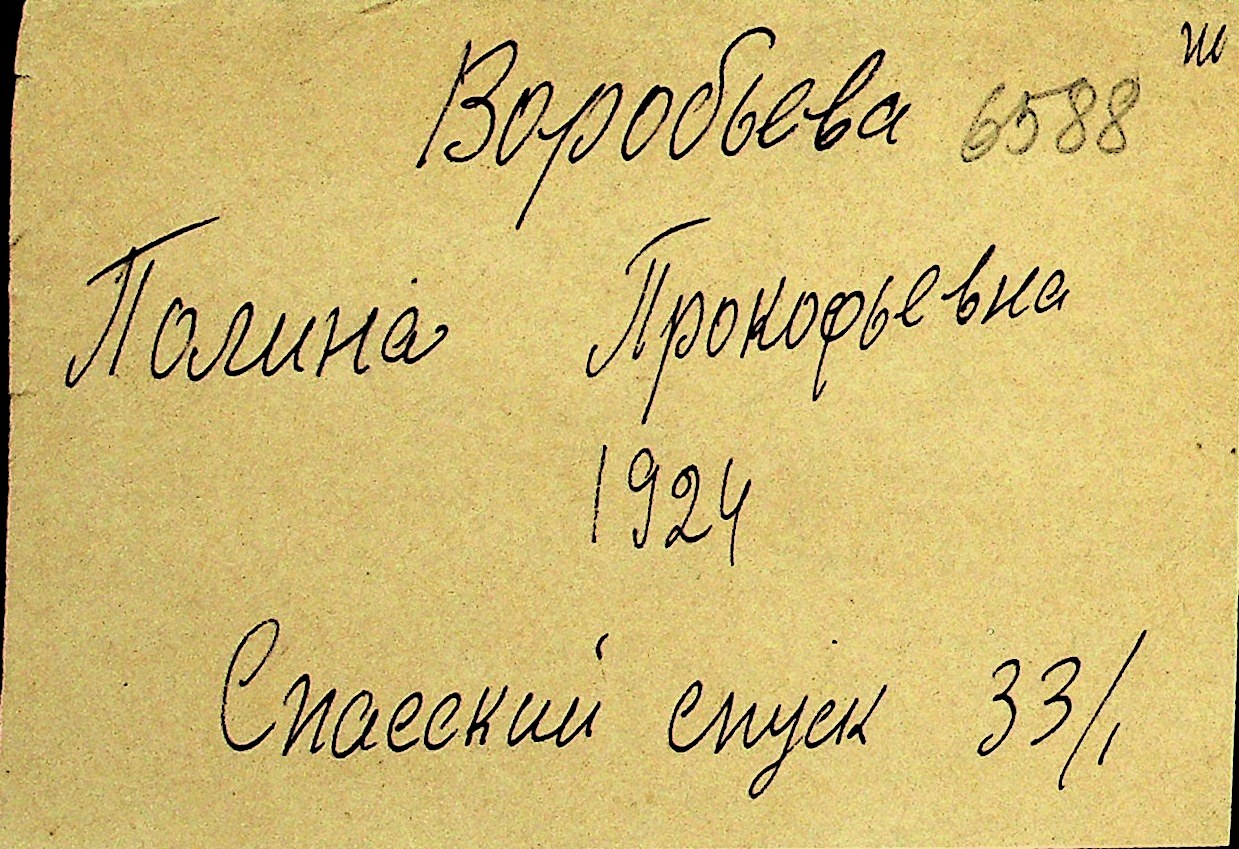 Воробьева 6588 ж
Полина Прокофьевна
1924
Спасский спуск 33/1